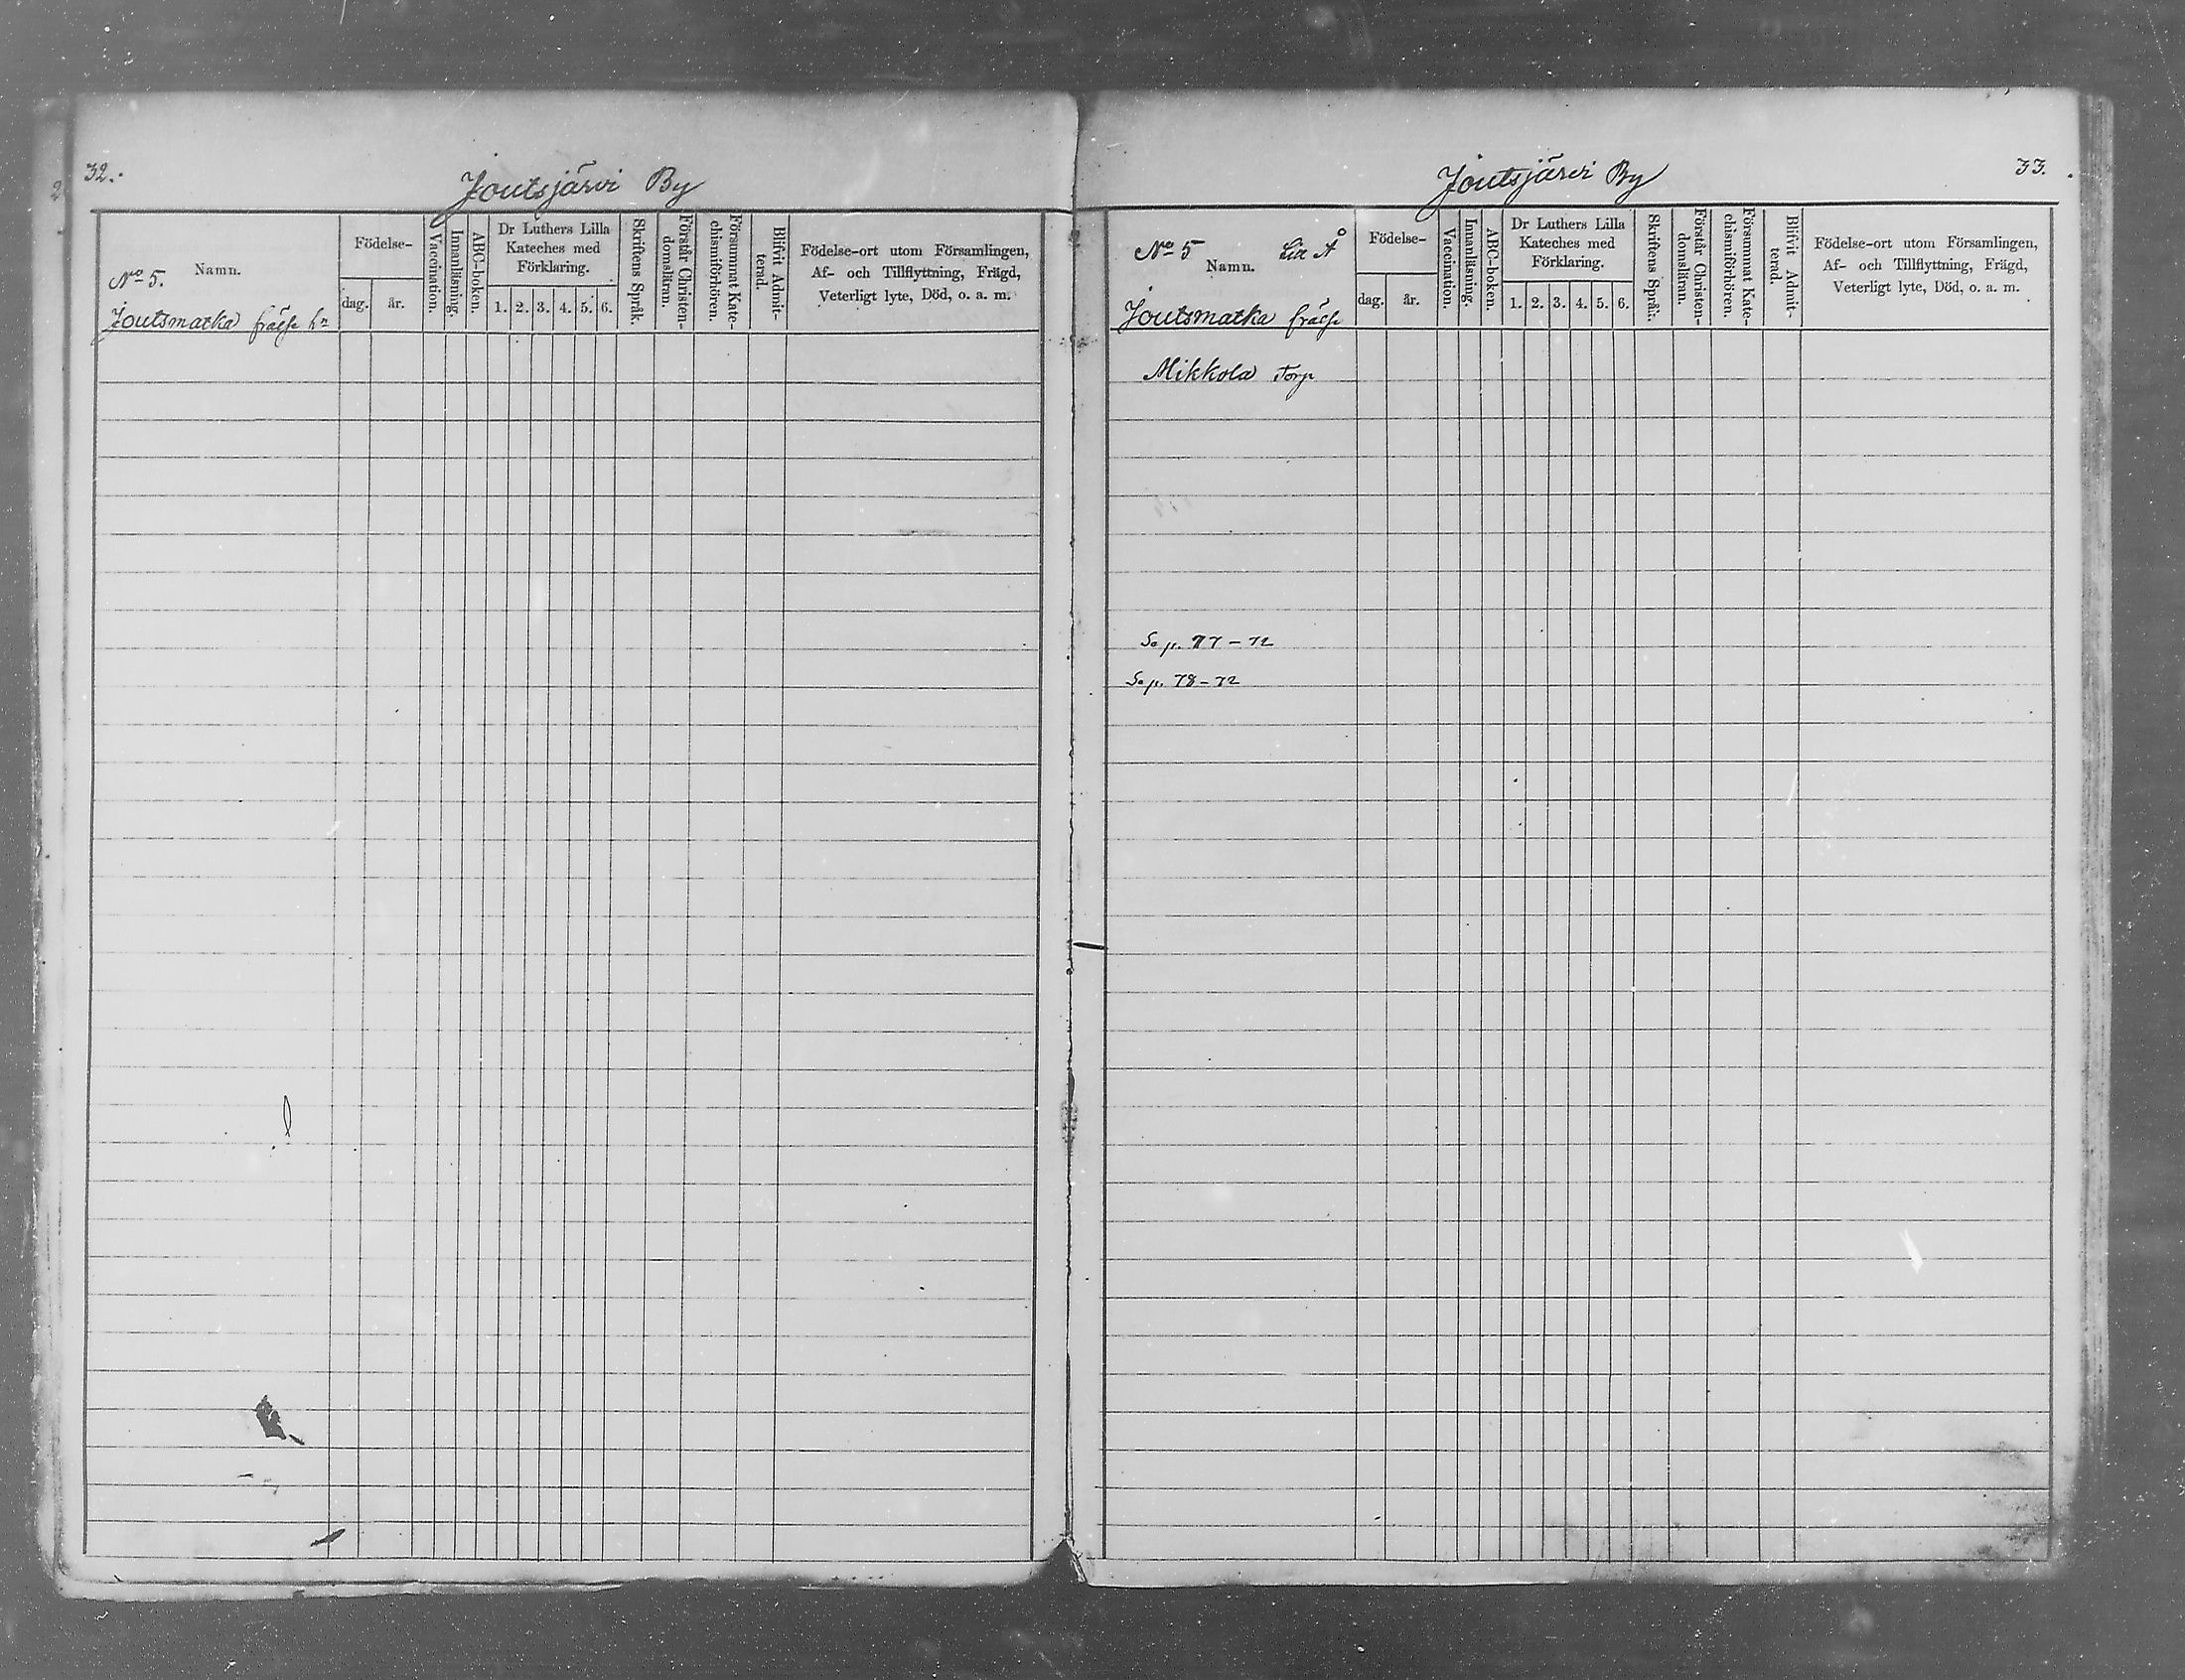 32.
Joutsjärvi By
No 5.
Namn.
Joutsmatka frälse hn
Födelse-
dag.
år.
Vaccination.
Innanläsning.
ABC-boken.
Dr Luthers Lilla
Kateches med
Förklaring.
1. 2. 3. 4. 5. 6.
Skriftens Språk.
Förstår Christen-
domsläran.
Försummat Kate-
chismiförhören.
Blifvit Admit-
terad.
Födelse-ort utom Församlingen,
Af- och Tillflyttning, Frägd,
Veterligt lyte, Död, o. a. m.
33.
Joutsjärvi By
No 5 Lit A
Namn.
Joutsmatka frälse
Födelse-
dag.
år.
Vaccination.
Innanläsning.
ABC-boken.
Dr Luthers Lilla
Kateches med
Förklaring.
1. 2. 3. 4. 5. 6.
Skriftens Språk.
Förstår Christen-
domsläran.
Försummat Kate-
chismiförhören.
Blifvit Admit-
terad.
Födelse-ort utom Församlingen,
Af- och Tillflyttning, Frägd,
Veterligt lyte, Död, o. a. m.
Mikkola Torp
Se p. 77-72
Se p. 78-72